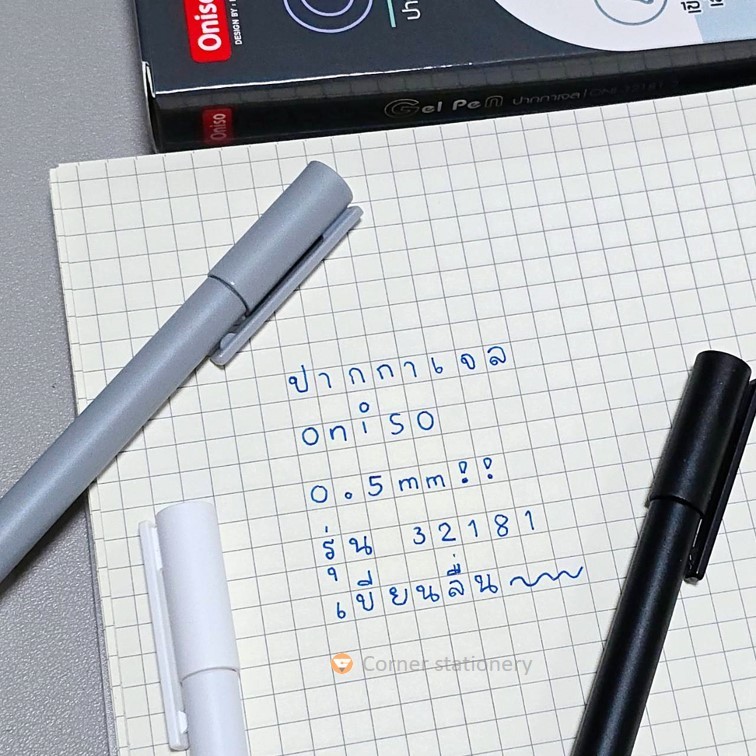 Oniso
Oniso
Gel Pen ปากกาเจล
ปากกาเจล
oniso
0.5mm!!
รุ่น 32181
เขียนลื่น~~
Corner stationery